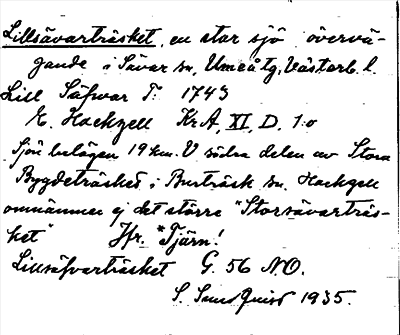 Lillsävarträsket, en stor sjö övervä-
gande i Sävar sn, Umeå tg, Västerb. l.
Lill Säfwar T. 1743
E. Hackzell Kr A, XI, D. 1:o
Sjön belägen 19 km. V södra delen av Stora
Bygdeträsket i Burträsk sn. Hackzell
omnämner ej det större "Storsävarträs-
ket" Jfr. *Tjärn!
Lillsäfvarträsket G. 56 NO.
S. Sundquist 1935.